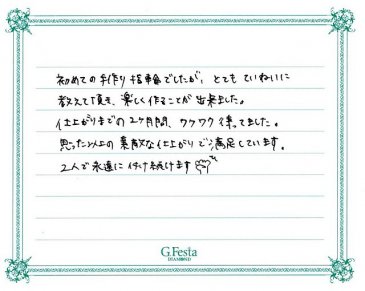 初めての手作り指輪でしたが、とてもていねいに
教えて頂き、楽しく作ることが出来ました。
仕上がりまでの2ヶ月間、ワクワク待ってました。
思った以上の素敵な仕上がりで満足しています。
2人で永遠に付け続けます
G.Festa
DIAMOND